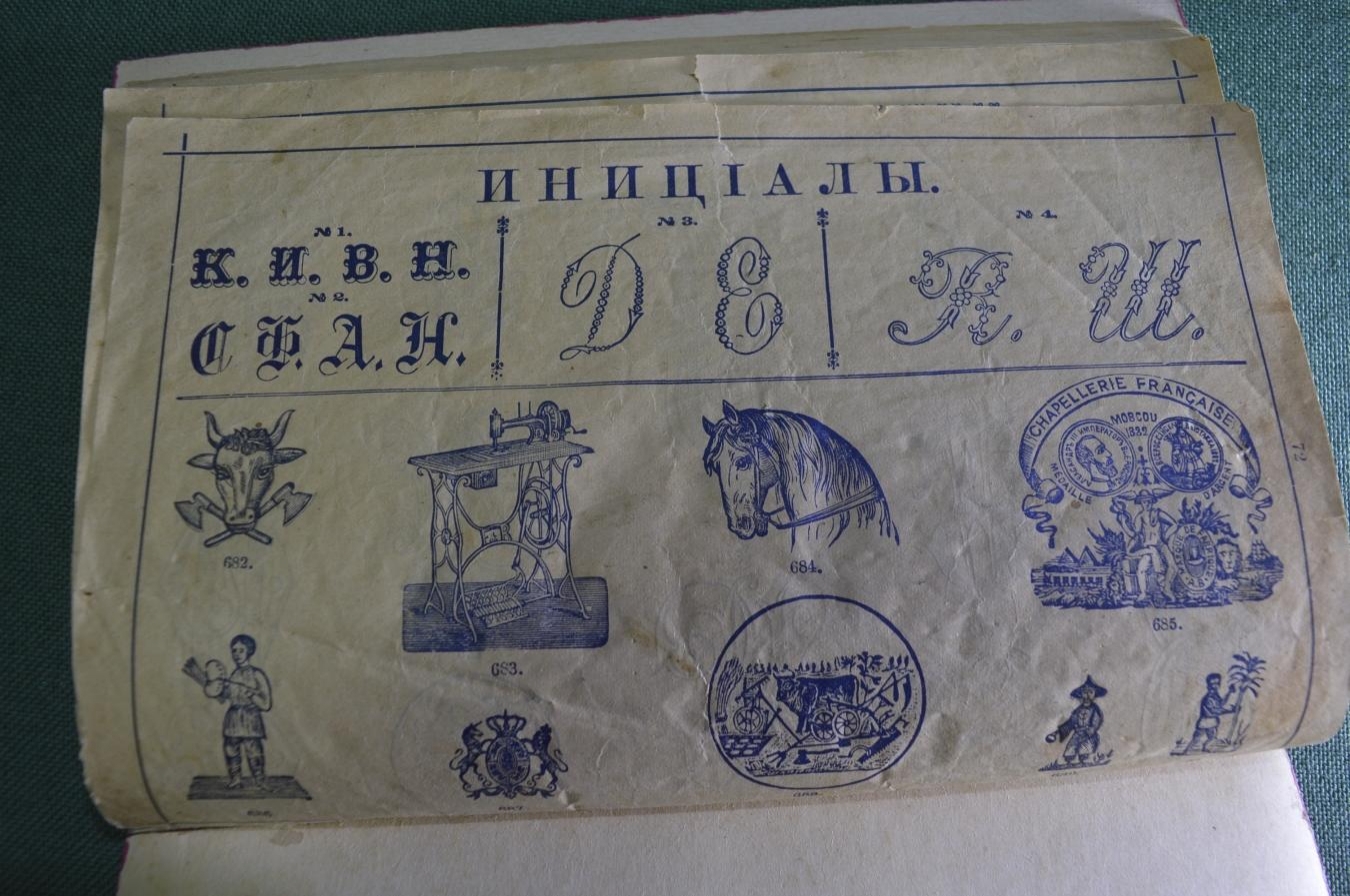 ИНИЦІАЛЫ.
№ 1.
К. И. В. Н.
№ 2.
С Б. А. Н.
№ 3.
Д Е
№ 4.
Я. Ш.
CHAPELLERIE FRANÇAISE
MOSCOU
1882
MÉDAILLE D'ARGENT
72
682.
683.
684.
685.